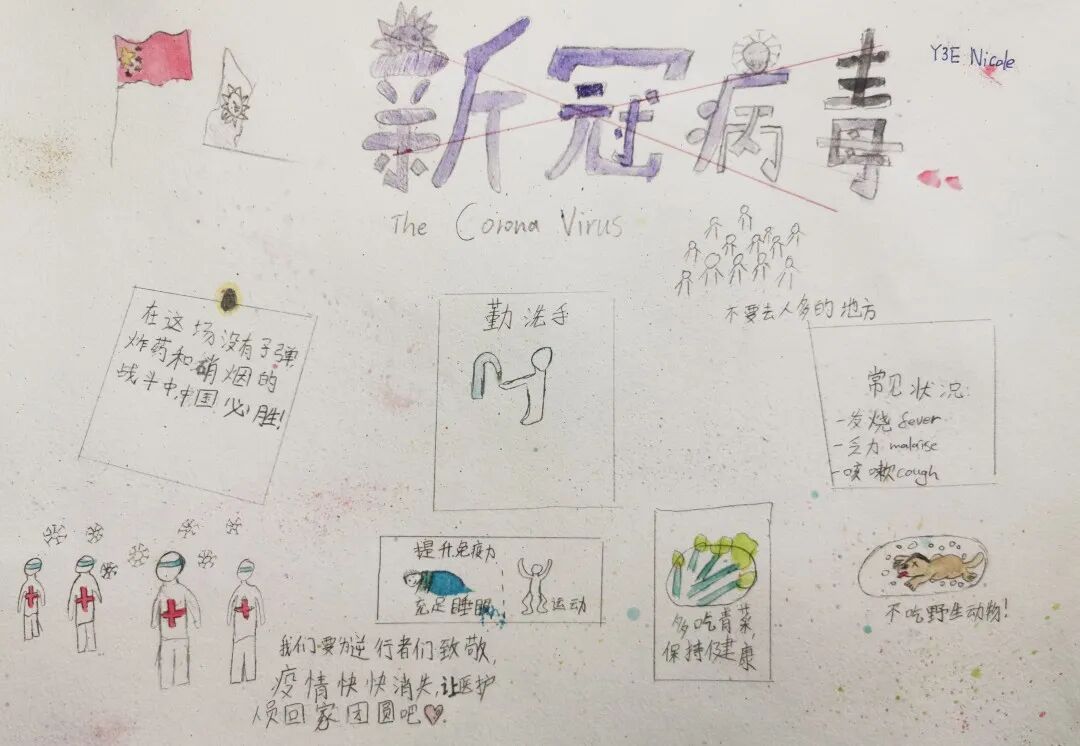 新冠病毒
Y3E Nicole
The Corona Virus
不要去人多的地方
在这场没有子弹,
炸药和硝烟的
战斗中,中国必胜!
勤洗手
常见状况:
-发烧 fever
-乏力 malaise
-咳嗽 cough
提升免疫力
充足睡眠
运动
多吃青菜,
保持健康
不吃野生动物!
我们要为逆行者们致敬,
疫情快快消失,让医护
人员回家团圆吧